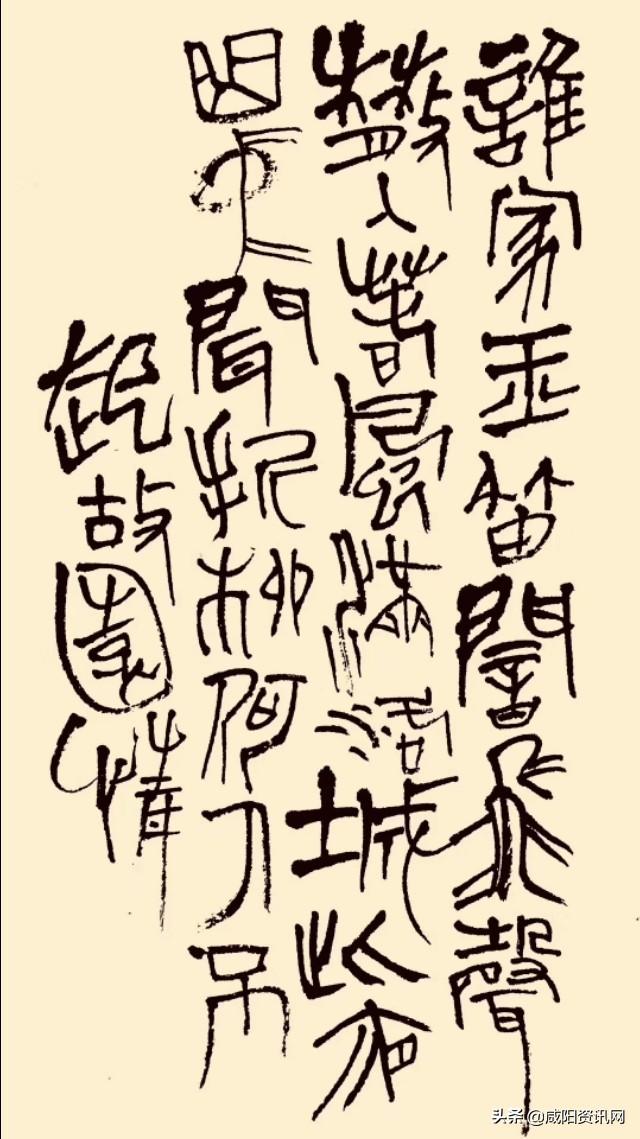 誰家玉笛闇飛聲
散入春風滿洛城此夜
曲中聞折柳何人不
起故園情
头条 @咸阳资讯网